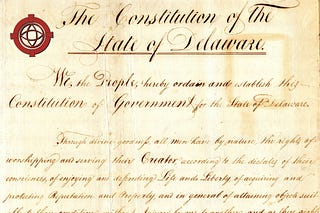 The Constitution of the
State of Delaware.
We, the People, hereby ordain and establish this
Constitution of Government for the State of Delaware.
Through divine goodness all men have by nature the rights of
worshipping and serving their Creator according to the dictates of their
consciences, of enjoying and defending Life and Liberty, of acquiring and
protecting Reputation and Property, and in general of attaining objects suit